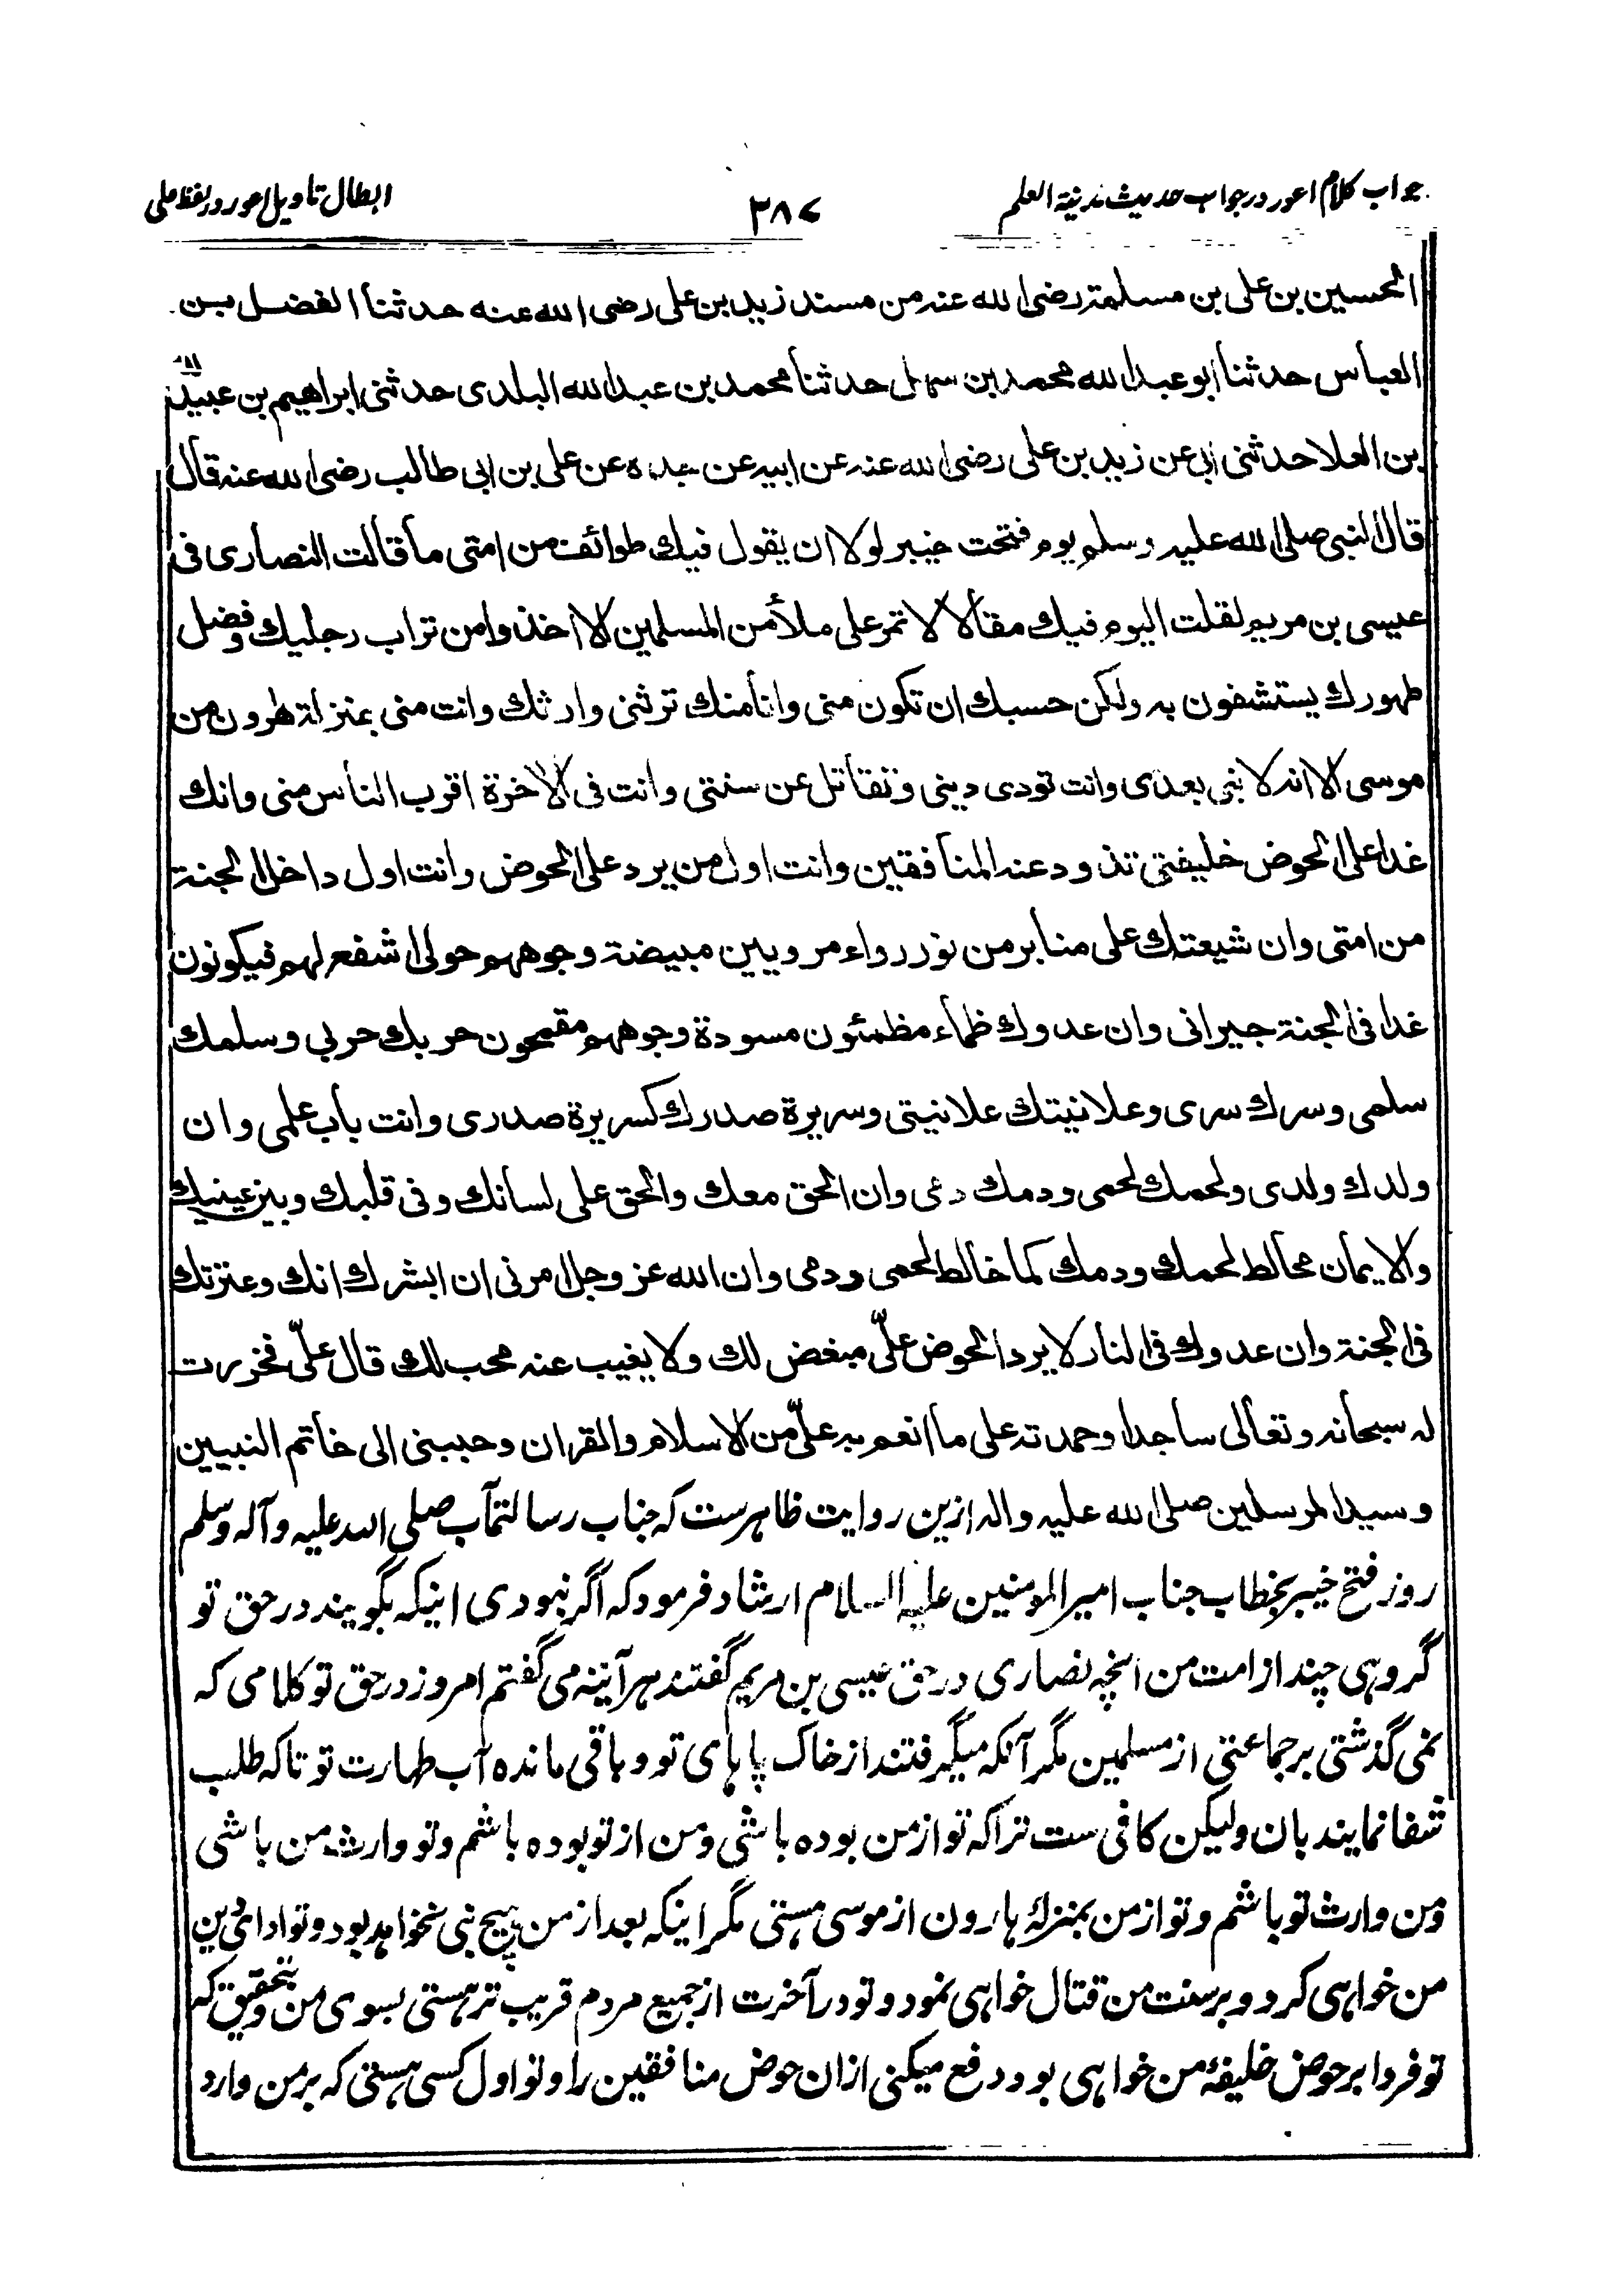 جواب کلام اعور در جواب حدیث مدینة العلم
۳۸۷
ابطال تاویل اعور در لفظ علی
الحسين بن على بن مسلمة رضى الله عنه من مسند زيد بن على رضى الله عنه حدثنا الفضل بن
العباس حدثنا ابو عبد الله محمد بن سهل حدثنا محمد بن عبد الله البلدى حدثنى ابراهيم بن عبيد الله
بن العلا حدثنى ابى عن زيد بن على رضى الله عنه عن ابيه عن جده عن على بن ابى طالب رضى الله عنه قال
قال النبى صلى الله عليه وسلم يوم فتحت خيبر لولا ان يقول فيك طوائف من امتى ما قالت النصارى فى
عيسى بن مريم لقلت اليوم فيك مقالا لا تمر على ملأ من المسلمين الا اخذوا من تراب رجليك وفضل
طهورك يستشفون به ولكن حسبك ان تكون منى وانا منك ترثنى وارثك وانت منى بمنزلة هرون من
موسى الا انه لا نبى بعدى وانت تودى دينى وتقاتل عن سنتى وانت فى الاخرة اقرب الناس منى وانك
غدا على الحوض خليفتى تذود عنه المنافقين وانت اول من يرد على الحوض وانت اول داخل الجنة
من امتى وان شيعتك على منابر من نور رواء مرويين مبيضة وجوههم حولى اشفع لهم فيكونون
غدا فى الجنة جيرانى وان عدوك ظماء مظمئون مسودة وجوههم مقمحون حربك حربى وسلمك
سلمى وسرك سرى وعلانيتك علانيتى وسريرة صدرك كسريرة صدرى وانت باب علمى وان
ولدك ولدى ولحمك لحمى ودمك دمى وان الحق معك والحق على لسانك وفى قلبك وبين عينيك
والايمان مخالط لحمك ودمك كما خالط لحمى ودمى وان الله عز وجل امرنى ان ابشرك انك وعترتك
فى الجنة وان عدوك فى النار لا يرد الحوض علىّ مبغض لك ولا يغيب عنه محب لك قال علىّ فخررت
له سبحانه وتعالى ساجدا وحمدته على ما انعم به علىّ من الاسلام والقران وحببنى الى خاتم النبيين
وسيد المرسلين صلى الله عليه واله ازین روایت ظاهرست که جناب رسالتمآب صلی الله علیه وآله وسلم
روز فتح خیبر بخطاب جناب امیر المومنین علیه السلام ارشاد فرمود که اگر نبودی اینکه بگویند در حق تو
گروهی چند از امت من آنچه نصاری در حق عیسی بن مریم گفتند هر آئینه می گفتم امروز در حق تو کلامی که
نمی گذشتی بر جماعتی از مسلمین مگر آنکه میگرفتند از خاک پاهای تو و باقی مانده آب طهارت تو تا که طلب
شفا نمایند بان ولیکن کافی ست ترا که تو از من بوده باشی و من از تو بوده باشم و تو وارث من باشی
و من وارث تو باشم و تو از من بمنزلهٔ هارون از موسی هستی مگر اینکه بعد از من هیچ نبی نخواهد بود و تو ادای دین
من خواهی کرد و بر سنت من قتال خواهی نمود و تو در آخرت از جمیع مردم قریب تر هستی بسوی من و بتحقیق که
تو فردا بر حوض خلیفهٔ من خواهی بود دفع میکنی ازان حوض منافقین را و تو اول کسی هستی که بر من وارد